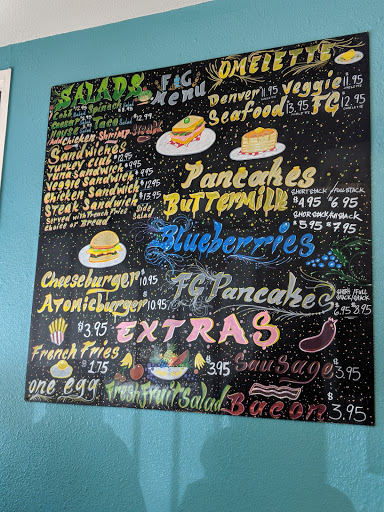 SALADS
Cobb Salad Spinach Salad
Caesar Salad Taco Salad
House Salad $12.99
Add Chicken Shrimp Steak
F&C
Menu
Sandwiches
Turkey Club $12.95
Tuna Sandwich $9.95
Veggie Sandwich
Chicken Sandwich $12.95
Steak Sandwich $13.95
Served with French Fries Side Salad
Choice of Bread
Cheeseburger $10.95
Atomicburger $10.95
OMELETTE
Denver 11.95 Veggie 11.95
Seafood 13.95 FC 12.95
Pancakes
SHORT STACK / FULL STACK
Buttermilk $4.95 $6.95
SHORT STACK / FULL STACK
Blueberries $5.95 $7.95
SHORT / FULL
STACK / STACK
FC Pancakes 6.95 8.95
EXTRAS
$3.95
French Fries
$1.75
one egg
Fresh Fruit Salad $3.95
Sausage $3.95
Bacon $3.95